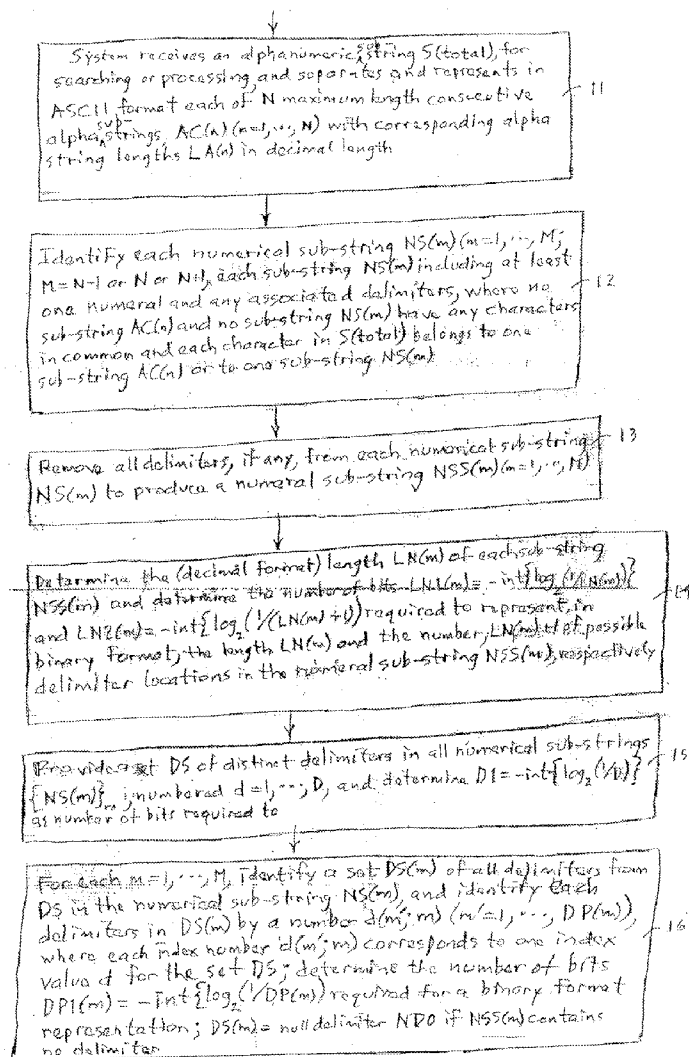 System receives an alphanumeric sub-string S(total), for
searching or processing, and separates and represents in
ASCII format each of N maximum length consecutive
alpha sub-strings, AC(n) (n=1, ..., N) with corresponding alpha
string lengths LA(n) in decimal length
11
Identify each numerical sub-string NS(m) (m=1, .., M;
M=N-1 or N or N+1), each sub-string NS(m) including at least
one numeral and any associated delimiters, where no
12
sub-string AC(n) and no sub-string NS(m) have any characters
in common and each character in S(total) belongs to one
sub-string AC(n) or to one sub-string NS(m)
Remove all delimiters, if any, from each numerical sub-string
13
NS(m) to produce a numeral sub-string NSS(m) (m=1, .., M)
Determine the (decimal format) length LN(m) of each sub-string
NSS(m) and determine the number of bits LN1(m) = -int{log2(1/LN(m))}
14
and LN2(m) = -int{log2(1/(LN(m)+1))} required to represent, in
binary format, the length LN(m) and the number, LN(m)+1 of possible
delimiter locations in the numeral sub-string NSS(m), respectively
Provide a set DS of distinct delimiters in all numerical sub-strings
15
{NS(m)}m, numbered d=1, ..., D, and determine D1 = -int{log2(1/D)}
as number of bits required to
For each m=1, ..., M, identify a set DS(m) of all delimiters from
DS in the numerical sub-string NS(m), and identify each
delimiters in DS(m) by a number d(m';m) (m'=1, ..., DP(m)),
16
where each index number d(m';m) corresponds to one index
value d for the set DS; determine the number of bits
DP1(m) = -int{log2(1/DP(m)) required for a binary format
representation; DS(m) = null delimiter ND0 if NSS(m) contains
no delimiter